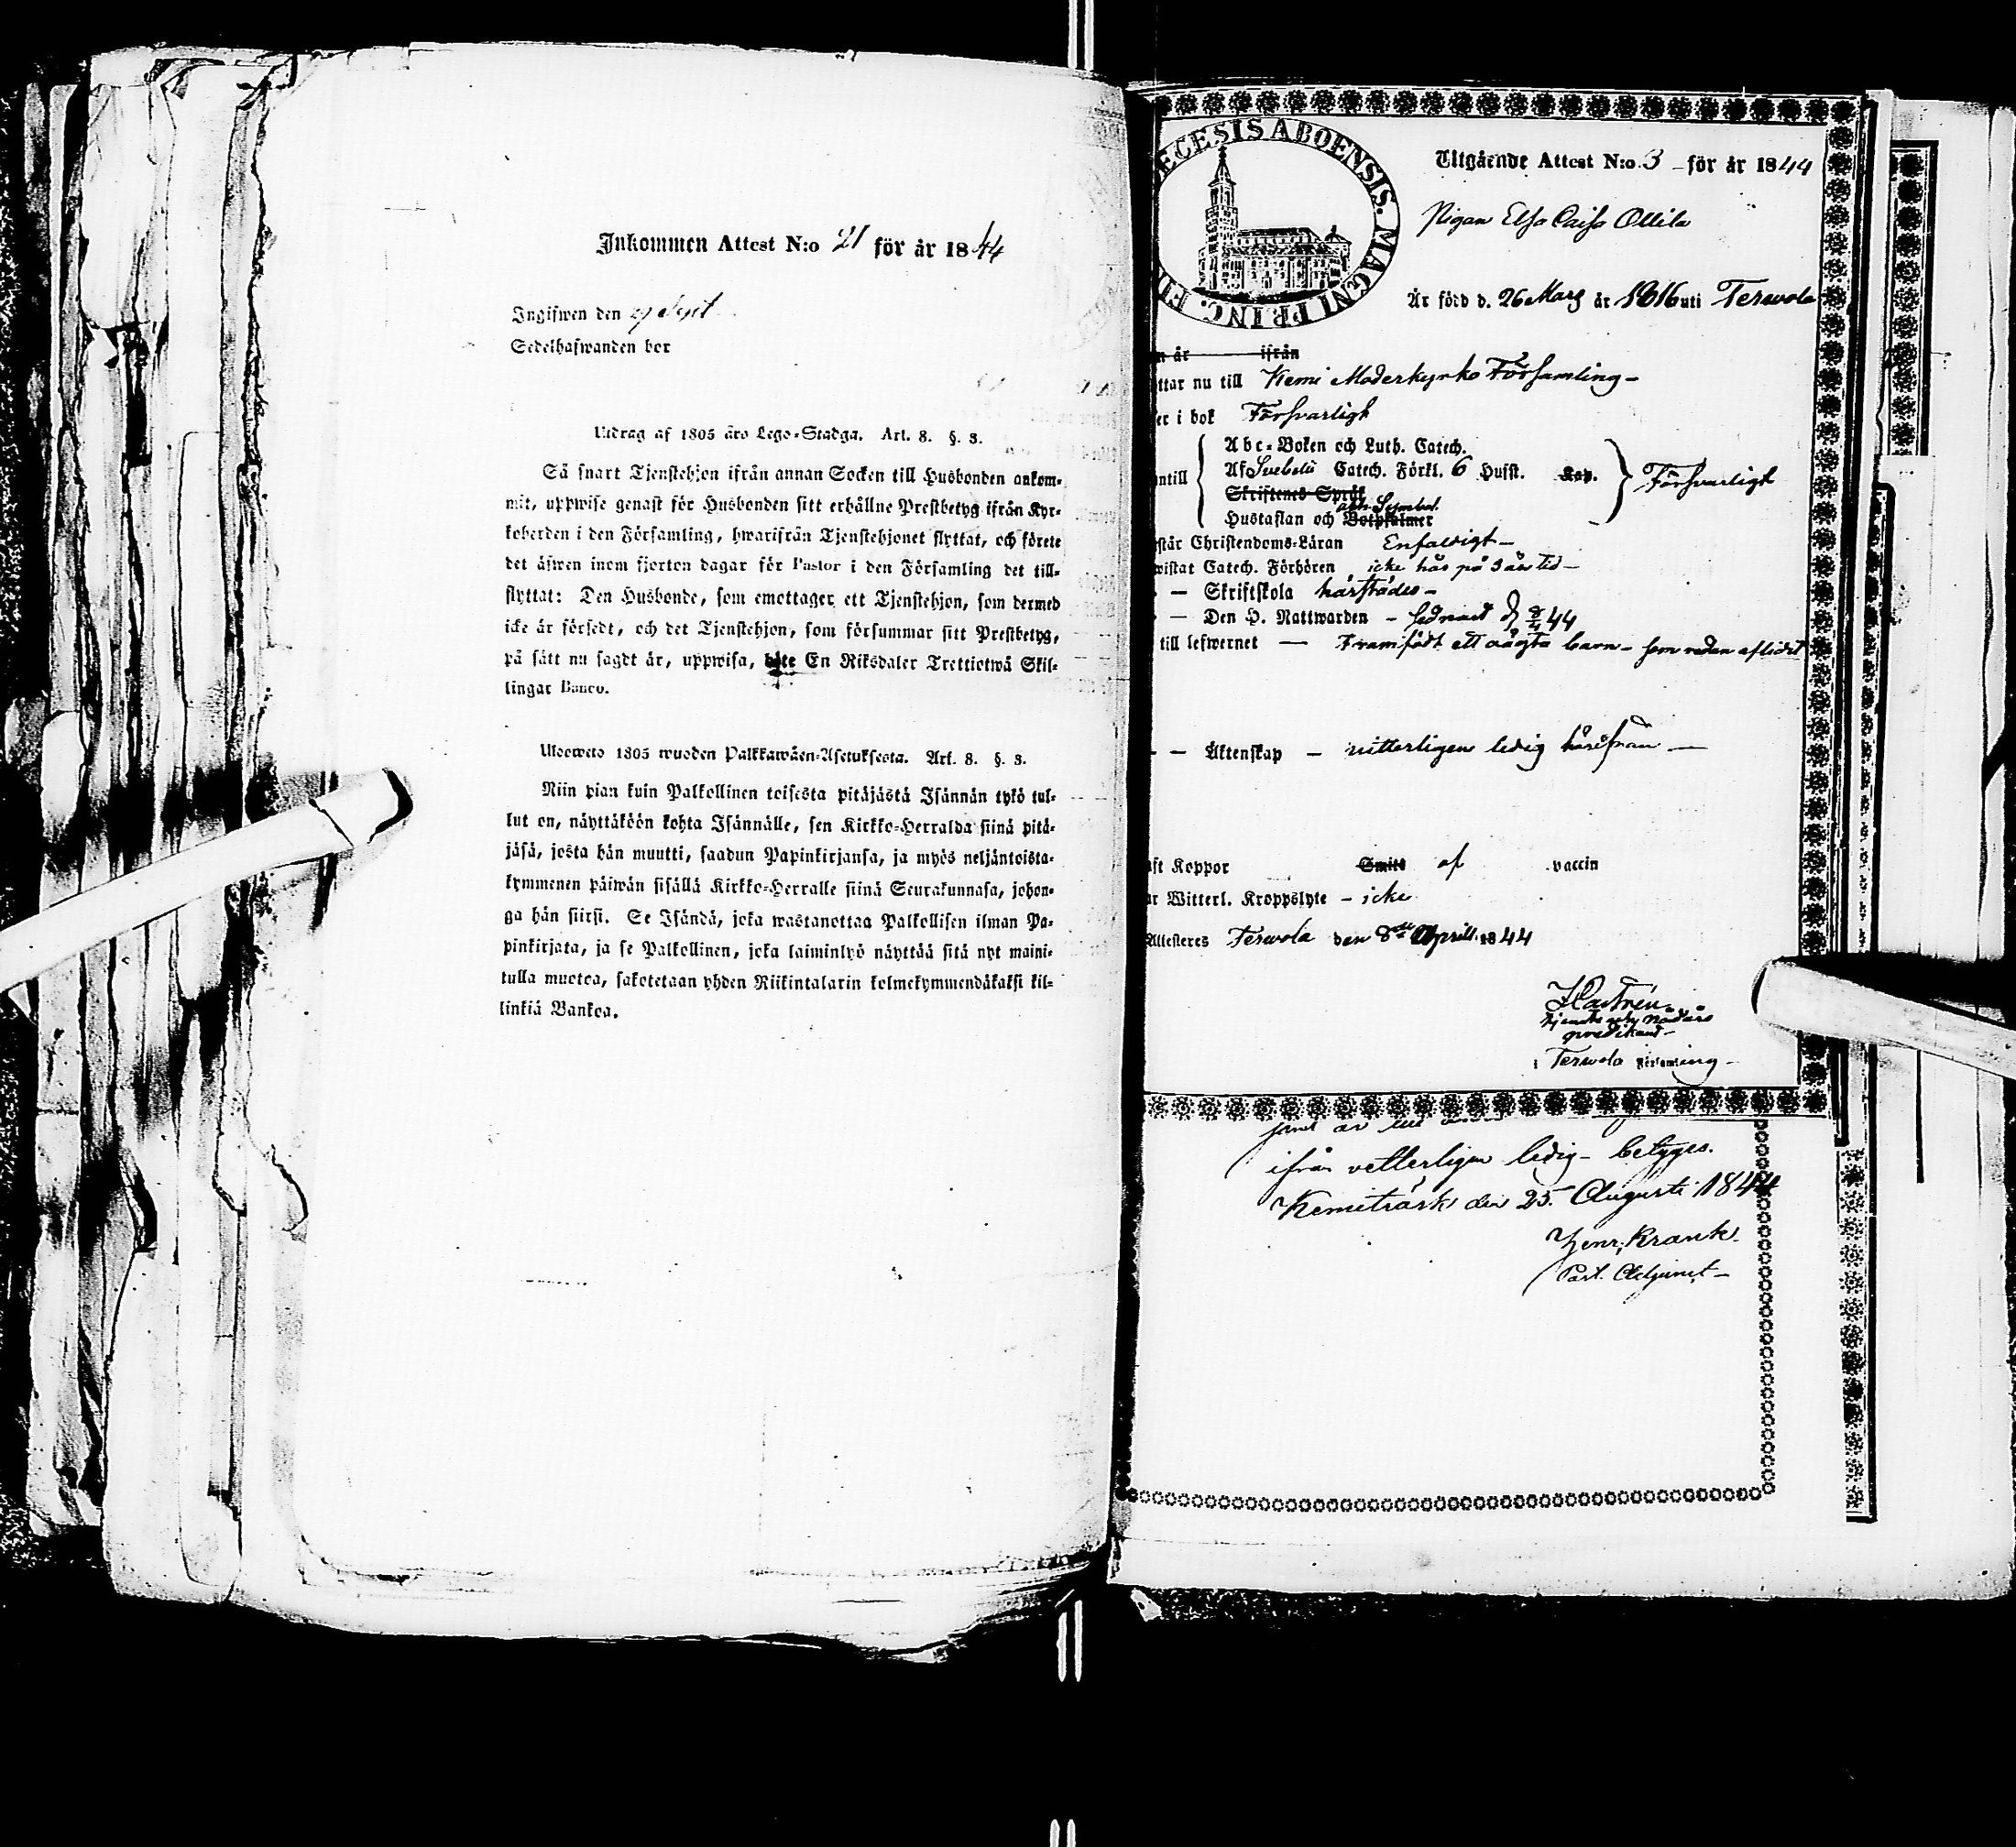 Inkommen Attest N:o 21 för år 1844
Ingifwen den 27 Sept
Sedelhafwanden bor
Utdrag af 1805 års Lego-Stadga. Art. 8. §. 3.
Så snart Tjenstehjon ifrån annan Socken till Husbonden ankom-
mit, uppwise genast för Husbonden sitt erhållne Prestbetyg ifrån Kyr-
koherden i den Församling, hwarifrån Tjenstehjonet flyttat, och förete
det äfwen inom fjorton dagar för Pastor i den Församling det till-
flyttat: Den Husbonde, som emottager ett Tjenstehjon, som dermed
icke är försedt, och det Tjenstehjon, som försummar sitt Prestbetyg,
på sätt nu sagdt är, uppwisa, böte En Riksdaler Trettiotwå Skil-
lingar Banco.
Ulosweto 1805 wuoden Palkkawäen-Asetuksesta. Art. 8. §. 3.
Niin pian kuin Palkollinen toisesta pitäjästä Isännän tykö tul-
lut on, näyttäköön kohta Isännälle, sen Kirkko-Herralda siinä pitä-
jäsä, josta hän muutti, saadun Papinkirjansa, ja myös neljäntoista-
kymmenen päiwän sisällä Kirkko-Herralle siinä Seurakunnasa, johon-
ga hän siirsi. Se Isändä, joka wastanottaa Palkollisen ilman Pa-
pinkirjata, ja se Palkollinen, joka laiminlyö näyttää sitä nyt maini-
tulla muotoa, sakotetaan yhden Riikintalarin kolmekymmendäkaksi kil-
linkiä Bankoa.
ECESIS ABOENSIS. MAGNI PRINC. FI
Utgående Attest N:o 3 för år 1844
Pigan Elsa Caisa Ollila
Är född d. 26 Mars år 1816 uti Terwola
n år ifrån
ttar nu till Kemi Moderkyrko Församling
er i bok Försvarligt
Abc-Boken och Luth. Catech.
ntill Af Svebelii Catech. Förkl. 6 Hufst. Kap. Försvarligt
Skriftenes Språk
och Symbol.
Hustaflan och Botpsalmer
står Christendoms-Läran Enfaldigt
wistat Catech. Förhören icke här på 3 års tid
— Skriftskola härstädes
— Den H. Nattwarden sednast d 8/4 44
till lefwernet — Framfödt ett oägta barn som redan aflidit
— Äktenskap — vitterligen ledig härifrån
ft Koppor Smitt af vaccin
r Witterl. Kroppslyte — icke
Attesteres Terwola den 8de April 1844
Castrén
predikant
i Terwola Församling
ifrån vetterligen ledig betyges.
Kemiträsk den 25 Augusti 1844
Henr. Krank
Past. Adjunct